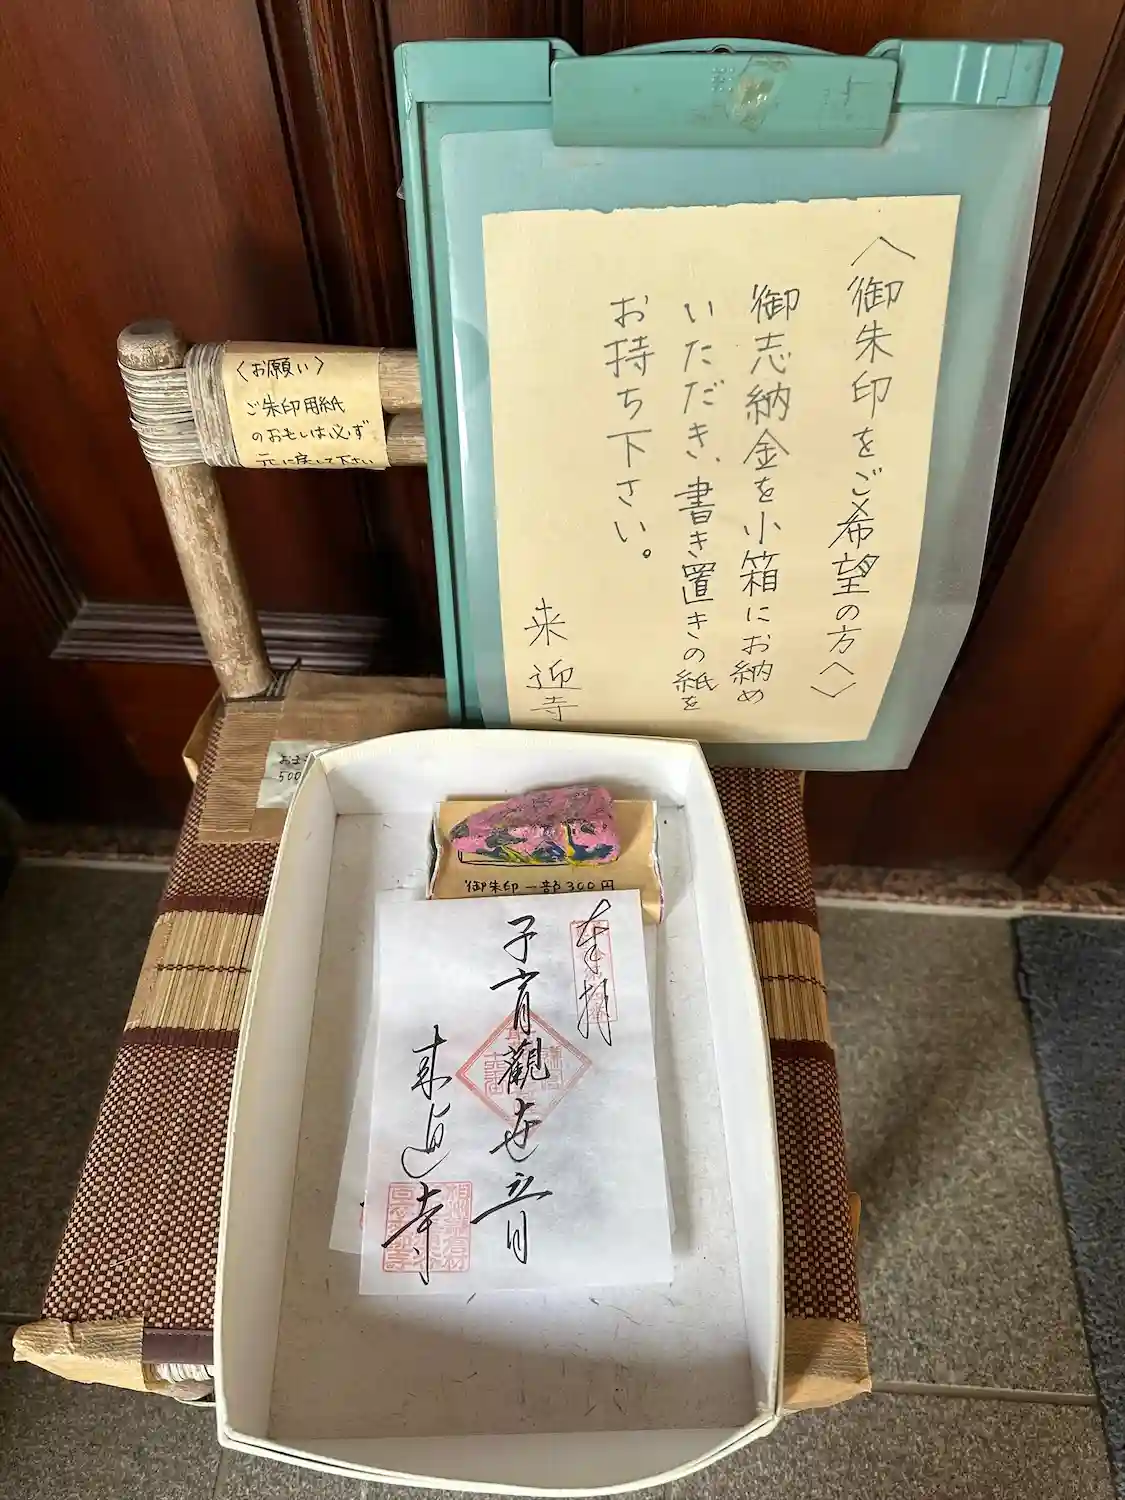 〈御朱印をご希望の方へ〉
御志納金を小箱にお納め
いただき、書き置きの紙を
お持ち下さい。
来迎寺
〈お願い〉
ご朱印用紙
のおもしは必ず
元に戻して下さい
500
御朱印一部300円
奉拝
子育觀世音
来迎寺